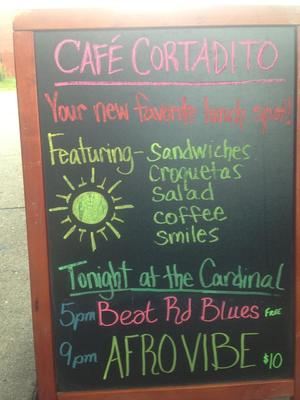 CAFÉ CORTADITO
Your new favorite lunch spot!!
Featuring- Sandwiches
Croquetas
Salad
coffee
smiles
Tonight at the Cardinal
5pm Beat Rd Blues FREE
9pm AFROVIBE $10